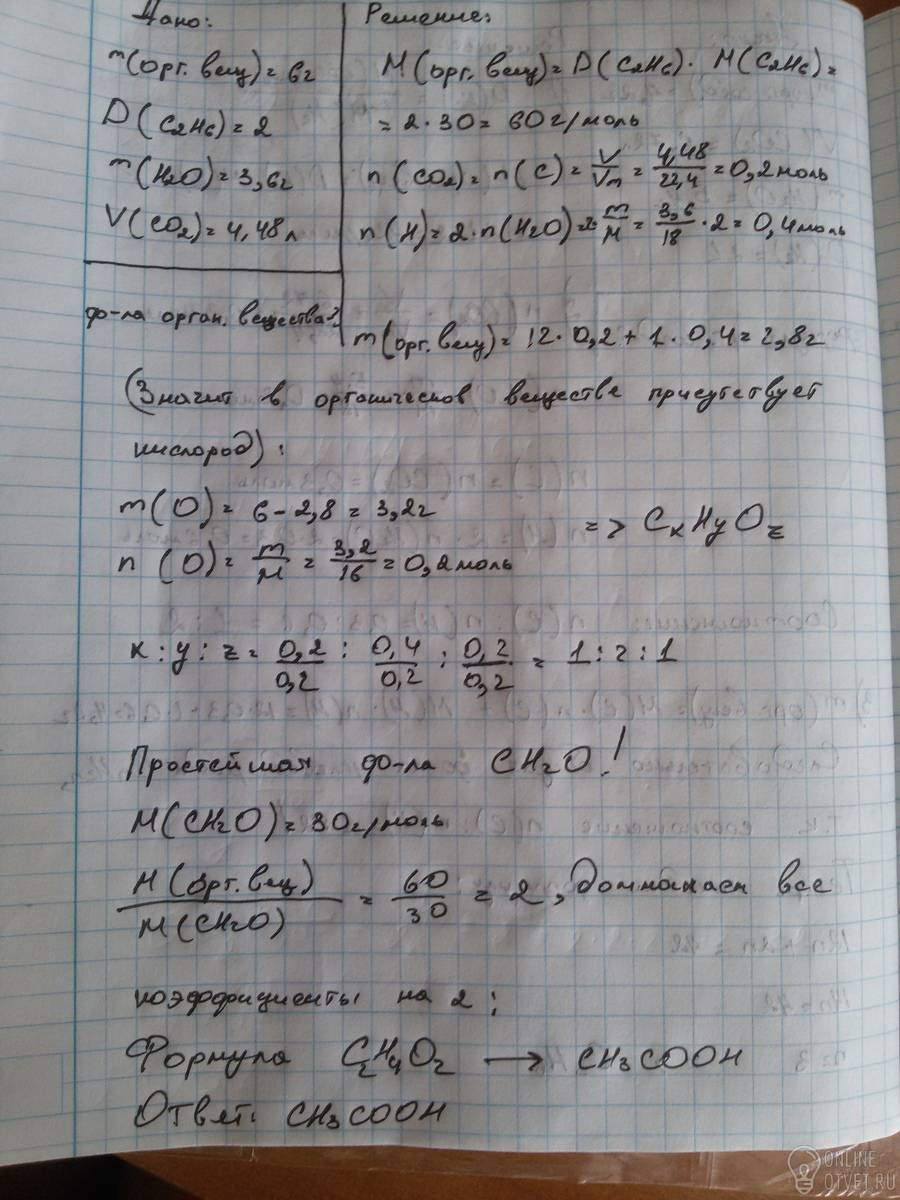 Дано:
Решение:
m(орг. вещ) = 6г
D(C2H6) = 2
m(H2O) = 3,6г
V(CO2) = 4,48л
ф-ла орган. вещества?
M(орг. вещ) = D(C2H6) · M(C2H6) =
= 2 · 30 = 60 г/моль
n(CO2) = n(C) = V/Vm = 4,48/22,4 = 0,2 моль
n(H) = 2 · n(H2O) = 2 m/M = 3,6/18 · 2 = 0,4 моль
m(орг. вещ) = 12 · 0,2 + 1 · 0,4 = 2,8г
(Значит в органическом веществе присутствует
кислород):
m(O) = 6 - 2,8 = 3,2г
n(O) = m/M = 3,2/16 = 0,2 моль
=> CxHyOz
x : y : z = 0,2/0,2 : 0,4/0,2 : 0,2/0,2 = 1 : 2 : 1
Простейшая ф-ла CH2O!
M(CH2O) = 30 г/моль
M(орг. вещ)/M(CH2O) = 60/30 = 2, Домнажаем все
коэффициенты на 2:
Формула C2H4O2 → CH3COOH
Ответ: CH3COOH
ONLINE
OTVET.RU